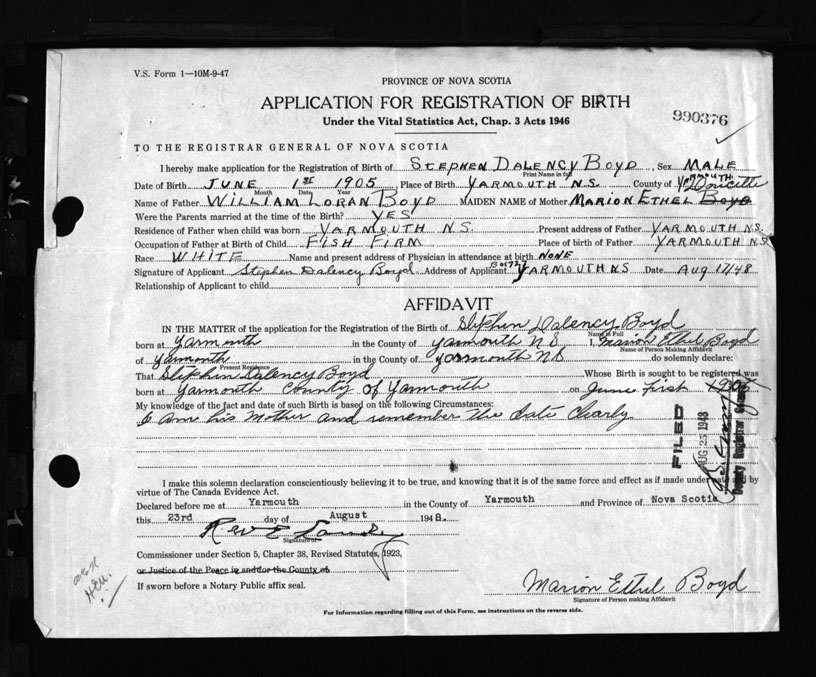 V.S. Form 1—10M-9-47
PROVINCE OF NOVA SCOTIA
APPLICATION FOR REGISTRATION OF BIRTH
Under the Vital Statistics Act, Chap. 3 Acts 1946
990376
TO THE REGISTRAR GENERAL OF NOVA SCOTIA
I hereby make application for the Registration of Birth of STEPHEN DALENCY BOYD, Sex MALE
Print Name in full
Date of Birth JUNE 1ST 1905 Place of Birth YARMOUTH N.S. County of YARMOUTH
Month Date Year
Name of Father WILLIAM LORAN BOYD MAIDEN NAME of Mother MARION ETHEL BOYD Doucette
Were the Parents married at the time of the Birth? YES
Residence of Father when child was born YARMOUTH N.S. Present address of Father YARMOUTH N.S.
Occupation of Father at Birth of Child FISH FIRM Place of birth of Father YARMOUTH N.S.
Race WHITE Name and present address of Physician in attendance at birth NONE
Signature of Applicant Stephen Dalency Boyd Address of Applicant Box 727 YARMOUTH NS Date Aug 17/48
Relationship of Applicant to child
AFFIDAVIT
IN THE MATTER of the application for the Registration of the Birth of Stephen Dalency Boyd
Name in Full
born at Yarmouth in the County of Yarmouth NS I, Marion Ethel Boyd
Name of Person Making Affidavit
of Yarmouth in the County of Yarmouth NS do solemnly declare:
Present Residence
That Stephen Dalency Boyd Whose Birth is sought to be registered was
born at Yarmouth County of Yarmouth on June First 1905
My knowledge of the fact and date of such Birth is based on the following Circumstances:
I am his Mother and remember the date Clearly
FILED
AUG 25 1948
Deputy Registrar General
I make this solemn declaration conscientiously believing it to be true, and knowing that it is of the same force and effect as if made under by
virtue of The Canada Evidence Act.
Declared before me at Yarmouth in the County of Yarmouth and Province of Nova Scotia
this 23rd day of August 1948.
Rev E
Signature of
Commissioner under Section 5, Chapter 38, Revised Statutes, 1923,
or Justice of the Peace in and for the County of
If sworn before a Notary Public affix seal.
Marion Ethel Boyd
Signature of Person making Affidavit
For Information regarding filling out of this Form, see instructions on the reverse side.